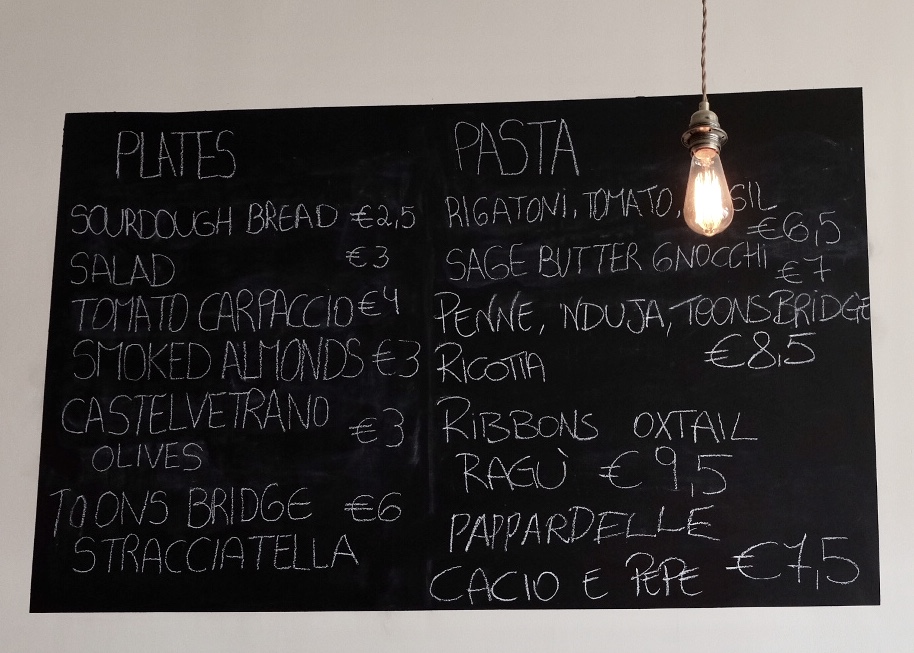 PLATES
SOURDOUGH BREAD €2,5
SALAD €3
TOMATO CARPACCIO €4
SMOKED ALMONDS €3
CASTELVETRANO €3
OLIVES
TOONS BRIDGE €6
STRACCIATELLA
PASTA
RIGATONI, TOMATO,
€6,5
SAGE BUTTER GNOCCHI €7
PENNE, 'NDUJA, TOONSBRIDGE
RICOTTA €8,5
RIBBONS OXTAIL
RAGÙ €9,5
PAPPARDELLE
CACIO E PEPE €7,5